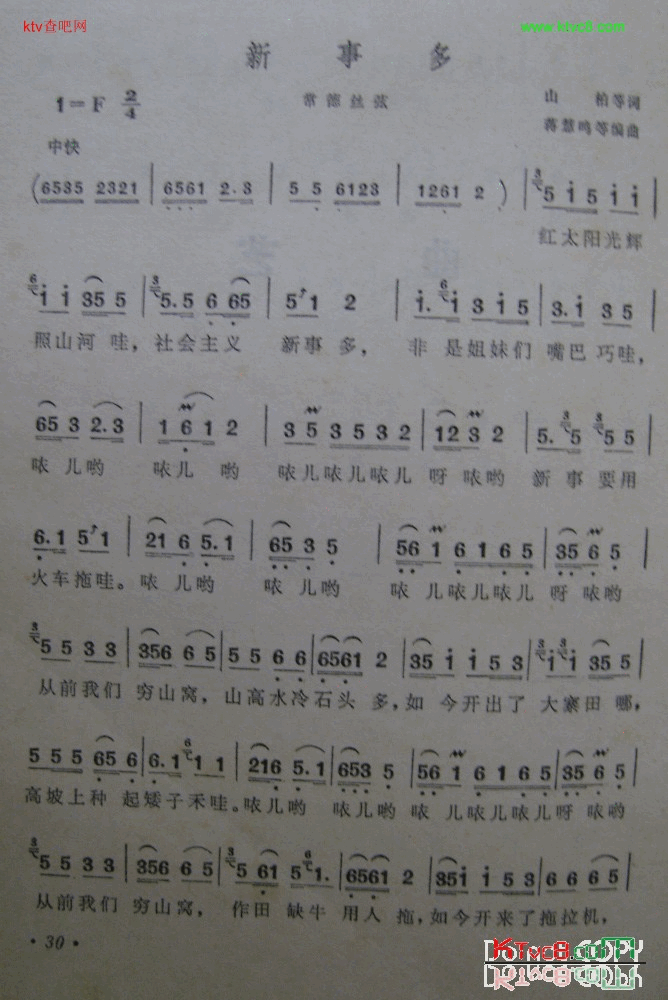 ktv查吧网
www.ktvc8.com
新 事 多
1=F 2/4
常德丝弦
山 柏等词
蒋慧鸣等编曲
中快
(6535 2321 | 6561 2·3 | 5 5 6123 | 1261 2 ) | 5 i 5 i i
红太阳光辉
i i 35 5 | 5.5 6 65 | 5 1 2 | i. i 3 i 5 | 3.i 3 5
照山河 哇，社会主义 新事 多， 非 是姐妹们 嘴巴 巧哇，
65 3 2.3 | 1 6 1 2 | 3 5 3 5 3 2 | 12 3 2 | 5. 5 5 5
哝 儿哟 哝儿 哟 哝儿哝儿哝儿 呀 哝哟 新 事 要用
6.1 5 1 | 21 6 5.1 | 65 3 5 | 56 1 6 1 6 5 | 35 6 5
火车拖哇。哝 儿哟 哝 儿哟 哝 儿哝儿哝儿 呀 哝哟
5 5 3 3 | 356 6 5 | 5 5 6 6 | 6561 2 | 35 i i 5 3 | i i 35 5
从前我们 穷山窝， 山高水冷石头 多，如 今开出了 大寨田 哪，
5 5 5 65 6 | 6.1 1 1 | 216 5.1 | 653 5 | 56 1 6 1 6 5 | 35 6 5
高坡上种 起矮子禾哇。哝儿哟 哝儿哟 哝 儿哝儿哝儿呀 哝哟
5 5 3 3 | 356 6 5 | 5 61 5 1. | 6561 2 | 35i i 5 3 | 6 6 6 5
从前我们 穷山窝， 作田 缺牛 用人 拖，如今开来了拖拉机，
· 30 ·
KTvc8.com
DO NOT COPY